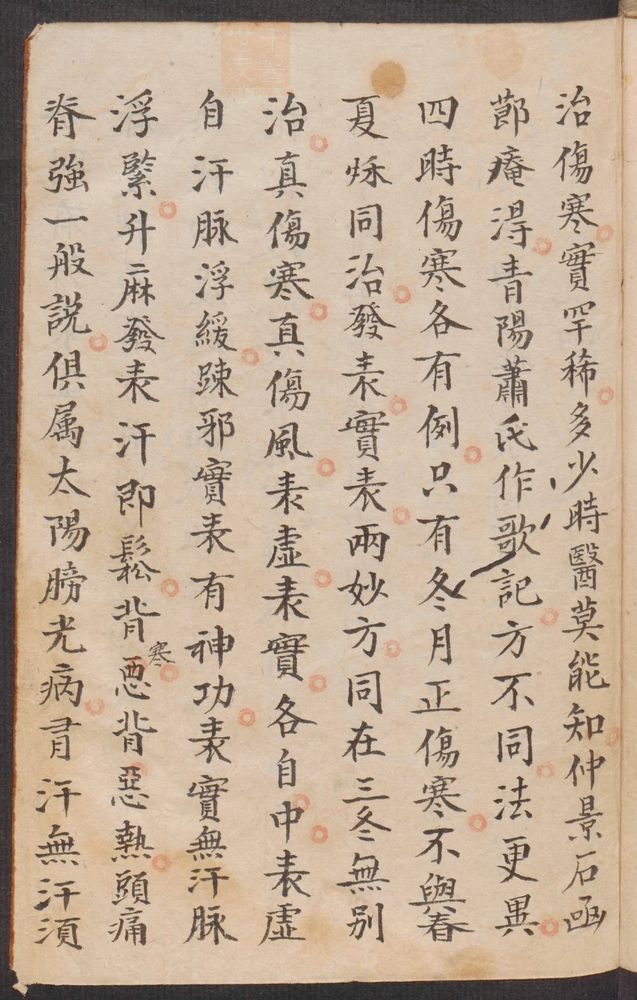 治傷寒實罕稀多少時醫莫能知仲景石函
節庵淂青陽蕭氏作歌記方不同法更異
四時傷寒各有例只有冬月正傷寒不與春
夏秌同治發表實表兩妙方同在三冬無別
治真傷寒真傷風表虛表實各自中表虛
自汗脉浮緩踈邪實表有神功表實無汗脉
浮緊升麻發表汗即鬆背惡寒背惡熱頭痛
脊強一般說俱属太陽膀光病有汗無汗須